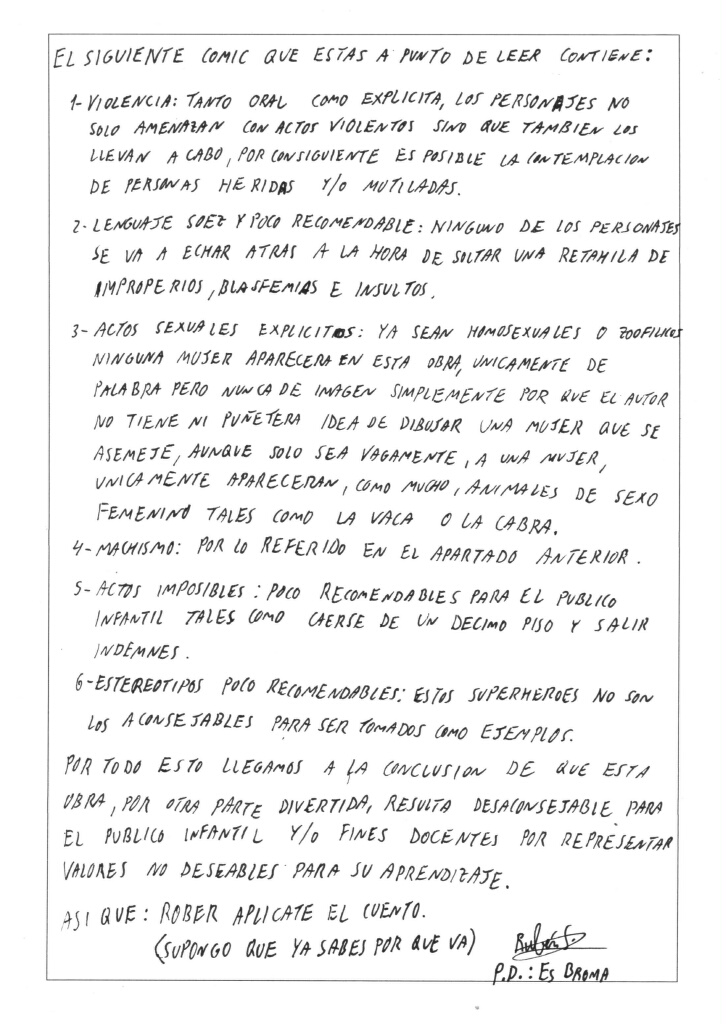 EL SIGUIENTE COMIC QUE ESTAS A PUNTO DE LEER CONTIENE:
1- VIOLENCIA: TANTO ORAL COMO EXPLICITA, LOS PERSONAJES NO
SOLO AMENAZAN CON ACTOS VIOLENTOS SINO QUE TAMBIEN LOS
LLEVAN A CABO, POR CONSIGUIENTE ES POSIBLE LA CONTEMPLACION
DE PERSONAS HERIDAS Y/O MUTILADAS.
2- LENGUAJE SOEZ Y POCO RECOMENDABLE: NINGUNO DE LOS PERSONAJES
SE VA A ECHAR ATRAS A LA HORA DE SOLTAR UNA RETAHILA DE
IMPROPERIOS, BLASFEMIAS E INSULTOS.
3- ACTOS SEXUALES EXPLICITOS: YA SEAN HOMOSEXUALES O ZOOFILICOS
NINGUNA MUJER APARECERA EN ESTA OBRA, UNICAMENTE DE
PALABRA PERO NUNCA DE IMAGEN SIMPLEMENTE POR QUE EL AUTOR
NO TIENE NI PUÑETERA IDEA DE DIBUJAR UNA MUJER QUE SE
ASEMEJE, AUNQUE SOLO SEA VAGAMENTE, A UNA MUJER,
UNICAMENTE APARECERAN, COMO MUCHO, ANIMALES DE SEXO
FEMENINO TALES COMO LA VACA O LA CABRA.
4- MACHISMO: POR LO REFERIDO EN EL APARTADO ANTERIOR.
5- ACTOS IMPOSIBLES: POCO RECOMENDABLES PARA EL PUBLICO
INFANTIL TALES COMO CAERSE DE UN DECIMO PISO Y SALIR
INDEMNES.
6- ESTEREOTIPOS POCO RECOMENDABLES: ESTOS SUPERHEROES NO SON
LOS ACONSEJABLES PARA SER TOMADOS COMO EJEMPLOS.
POR TODO ESTO LLEGAMOS A LA CONCLUSION DE QUE ESTA
OBRA, POR OTRA PARTE DIVERTIDA, RESULTA DESACONSEJABLE PARA
EL PUBLICO INFANTIL Y/O FINES DOCENTES POR REPRESENTAR
VALORES NO DESEABLES PARA SU APRENDIZAJE.
ASI QUE: ROBER APLICATE EL CUENTO.
(SUPONGO QUE YA SABES POR QUE VA)
Rubén
P.D.: ES BROMA